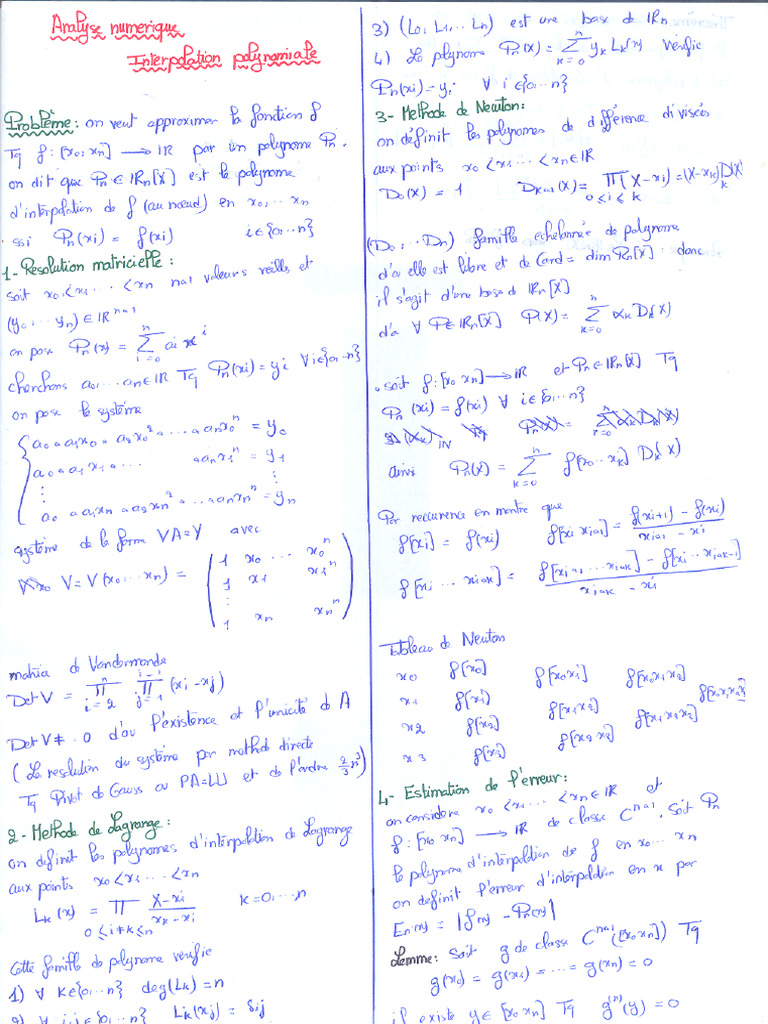 Analyse numerique
Interpolation polynomiale
Problème : on veut approximer la fonction f
Tq f : [x0; xn] → IR par un polynome Pn.
on dit que Pn ∈ IRn[X] est le polynome
d'interpolation de f (au nœud) en x0, ... xn
ssi Pn(xi) = f(xi) i∈{0...n}
1- Resolution matricielle :
soit x0,<x1...<xn n+1 valeurs réelles et
(y0,...yn) ∈ IR^n+1
on pose Pn(x) = Σ_{i=0}^{n} ai x^i
cherchons a0,...an ∈ IR Tq Pn(xi) = yi ∀i∈{0..n}
on pose le système
a0 + a1x0 + a2x0² + ... + anx0^n = y0
a0 + a1x1 + ... + anx1^n = y1
⋮
a0 + a1xn + a2xn² + ... + anxn^n = yn
système de la forme VA=Y avec
V = V(x0,...xn) = ( 1 x0 ... x0^n
1 x1 x1^n
⋮
1 xn xn^n )
matrice de Vandermonde
Det V = Π_{i=2}^{n} Π_{j=1}^{i-1} (xi - xj)
Det V ≠ 0 d'où l'existence et l'unicité de A
(La resolution du système par methode directe
Tq Pivot de Gauss ou PA=LU et de l'ordre 2/3 n³)
2- Methode de Lagrange :
on definit les polynomes d'interpolation de Lagrange
aux points x0<x1...<xn
Lk(x) = Π_{0≤i≠k≤n} (X-xi)/(xk-xi) k=0,...n
Cette famille de polynome vérifie
1) ∀ k∈{0...n} deg(Lk)=n
2) ∀ i,j∈{0...n} Li(xj) = δij
3) (L0, L1,... Ln) est une base de IRn
4) Le polynome Pn(x) = Σ_{k=0}^{n} yk Lk(x) vérifie
Pn(xi) = yi ∀ i∈{0...n}
3- Methode de Newton:
on définit les polynomes de différence divisées
aux points x0<x1...<xn ∈ IR
D0(X) = 1 Dk+1(X) = Π_{0≤i≤k} (X-xi) = (X-xk)Dk(X)
(D0,...Dn) famille echelonnée de polynome
d'où elle est libre et de Card = dim Pn[X] . donc
il s'agit d'une base de IRn[X]
d'où ∀ P∈IRn[X] P(X) = Σ_{k=0}^{n} αk Dk(X)
. soit f : [x0 xn] → IR et Pn ∈ IRn[X] Tq
Pn(xi) = f(xi) ∀ i∈{0...n}
ainsi Pn(X) = Σ_{k=0}^{n} f[x0...xk] Dk(X)
Par recurence on montre que
f[xi] = f(xi) f[xi xi+1] = (f(xi+1) - f(xi))/(xi+1 - xi)
f[xi ... xi+k] = (f[xi+1 ... xi+k] - f[xi ... xi+k-1])/(xi+k - xi)
Tableau de Newton
x0 f[x0] f[x0x1] f[x0x1x2]
x1 f[x1] f[x1x2] f[x0x1x2x3]
x2 f[x2] f[x1x2x3]
x3 f[x3] f[x2x3]
4- Estimation de l'erreur:
on considère x0<x1...<xn ∈ IR et
f : [x0 xn] → IR de classe C^n+1. soit Pn
le polynome d'interpolation de f en x0... xn
on definit l'erreur d'interpolation en x par
En(x) = |f(x) - Pn(x)|
Lemme: Soit g de classe C^n+1([x0 xn]) Tq
g(x0) = g(x1) = ... = g(xn) = 0
il existe y∈[x0 xn] Tq g^(n)(y) = 0